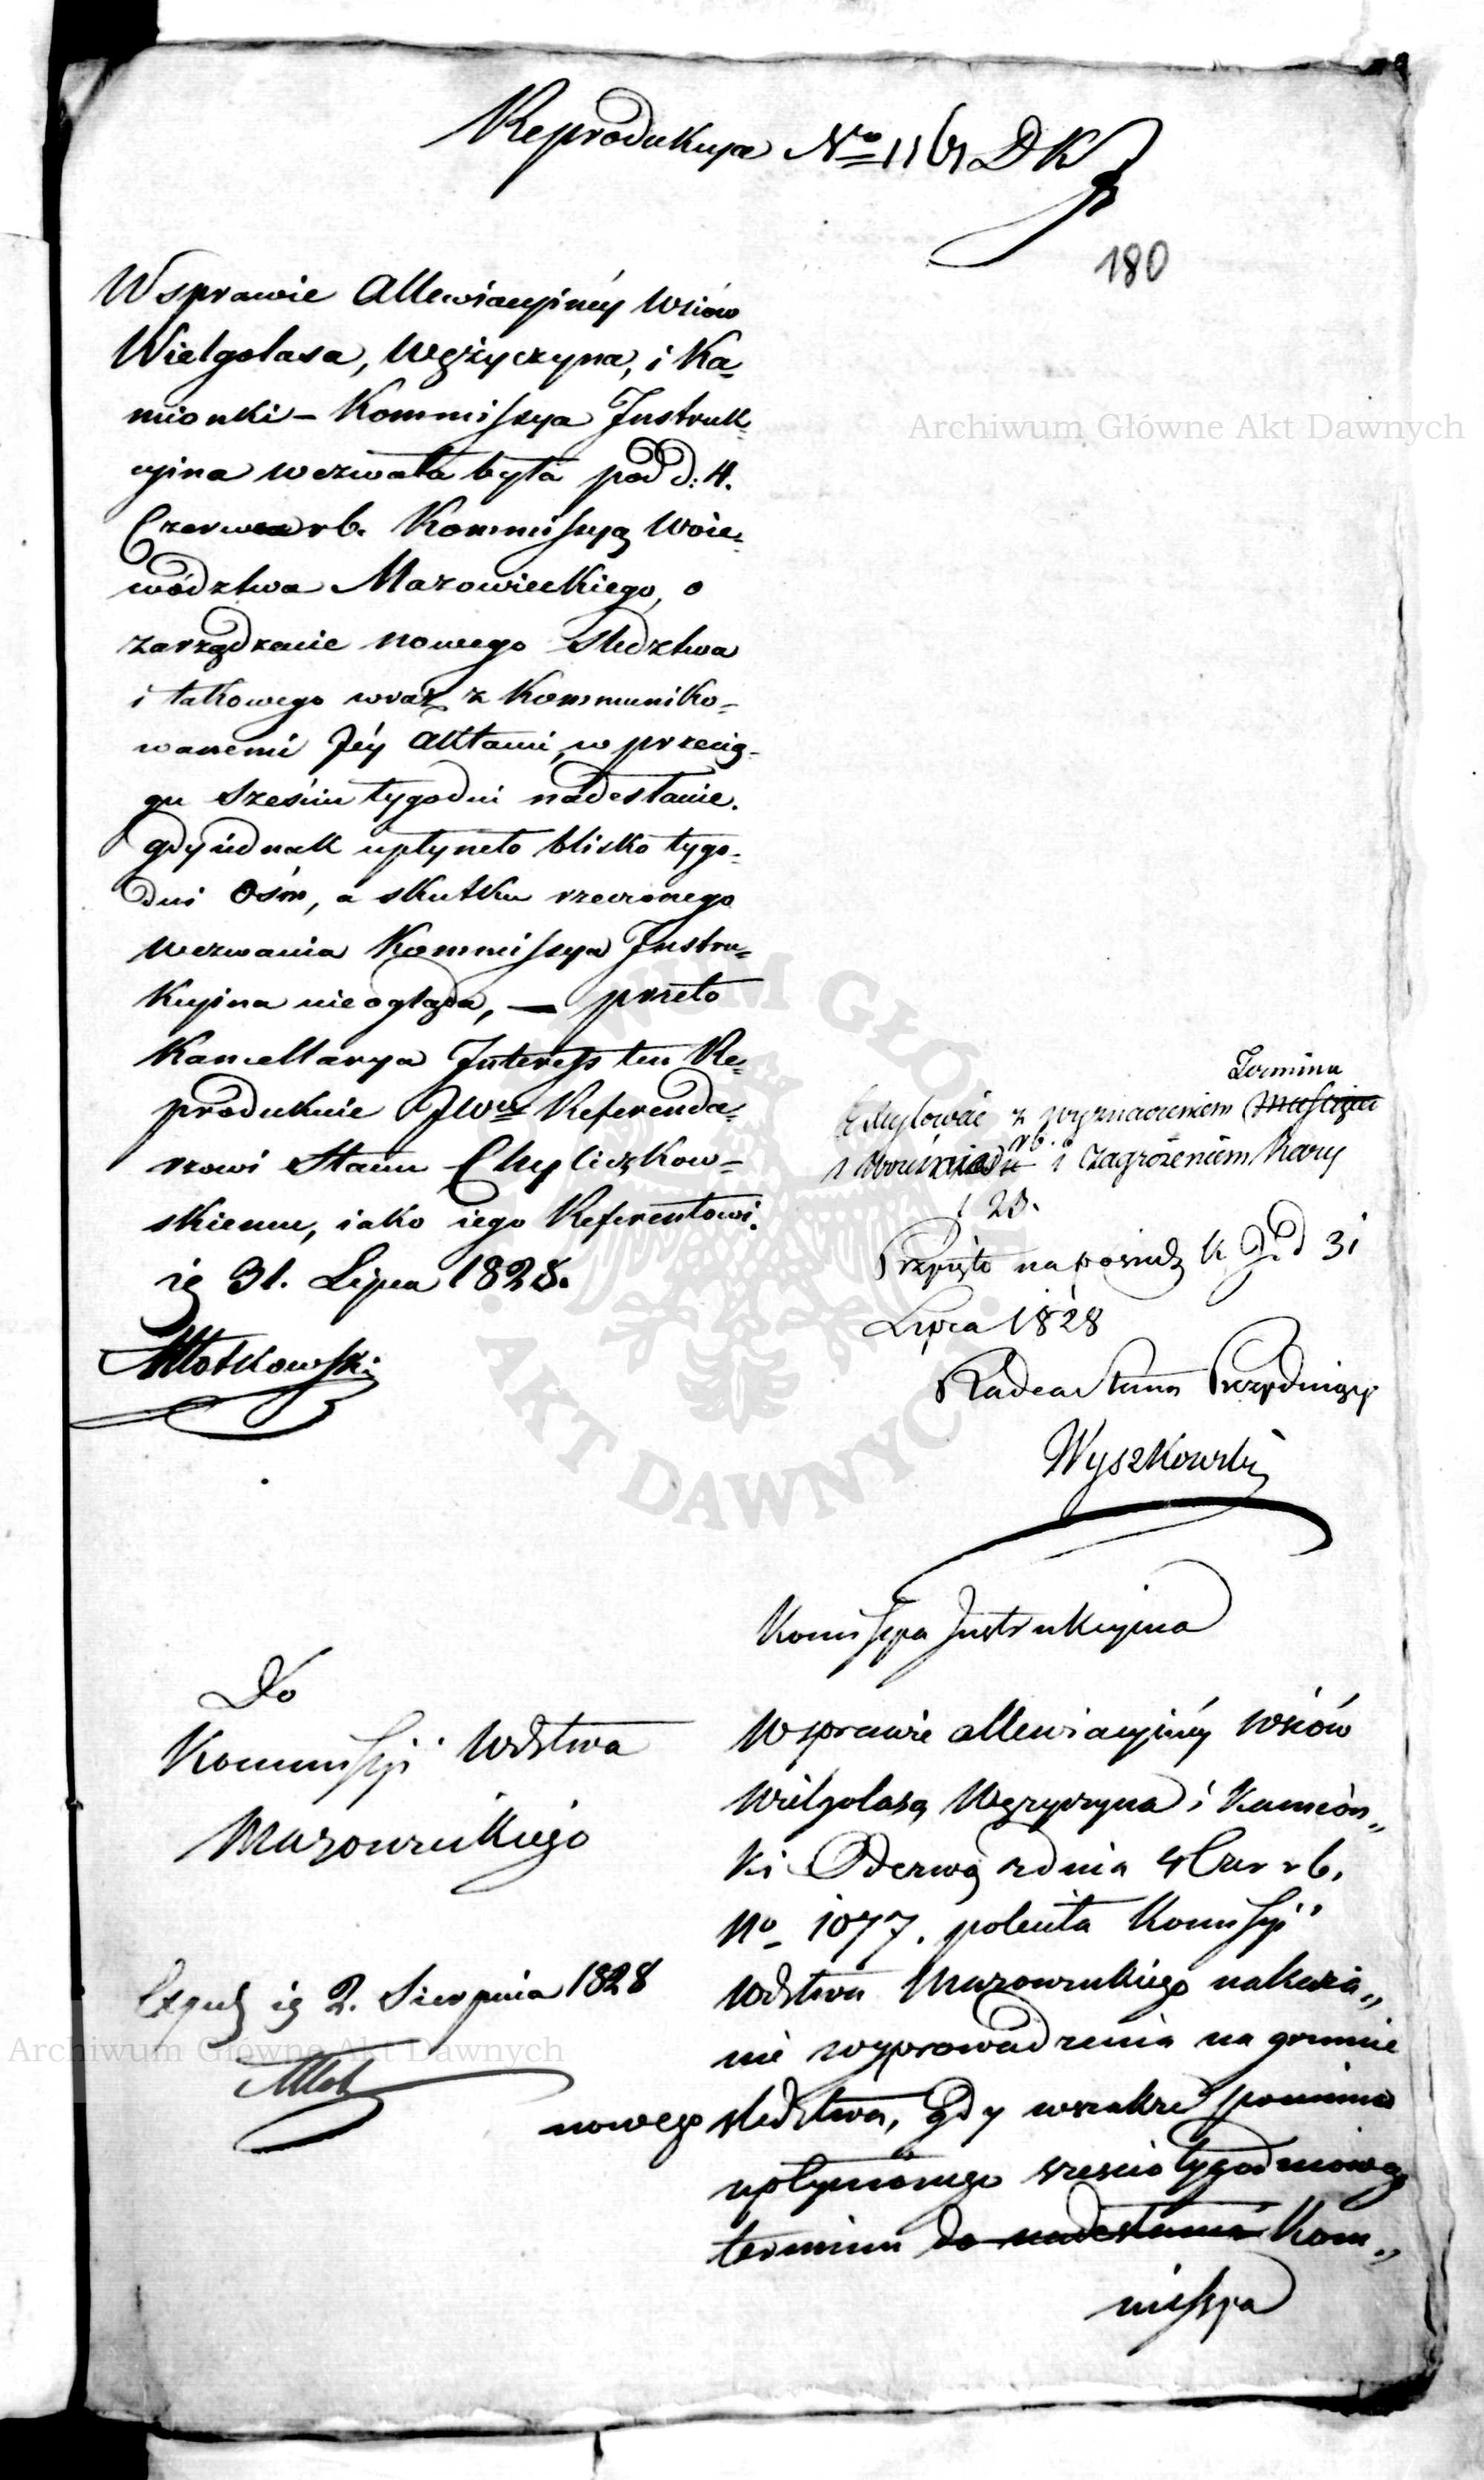 Reprodukcya No 1167 DK
180
W sprawie Allewiacyinéy Wsiów
Wielgolasa, Wężyczyna, i Ka=
mionki – Kommissya Instruk=
cyina wezwała była pod d: 4.
Czerwca rb. Kommissyą Woie=
wództwa Mazowieckiego, o
zarządzenie nowego Sledztwa
i takowego wraz z kommuniko=
wanemi Jéy Aktami, w przecią=
gu sześciu tygodni nadesłanie.
gdy iednak upłyneło blisko tygo=
dni ośm, a skutku rzeczonego
wezwania Kommissya Instru=
kcyina nieogląda, — przeto
Kancellarya Interess ten Re=
produkuie JWmu Referenda=
rzowi Stanu Chyliczkow=
skiemu, iako iego Referentowi.
ię 31. Lipca 1828.
Młotkowski
Termina
z wyznaczeniem
rb.
i zagrożeniem kary
Przyięto na posiedz K. J. d 31
Lipca 1828
Radca Stanu Prezyduiący
Wyszkowski
Komissya Instrukcyina
Do
Kommissyi Wdztwa
Mazowieckiego
Exped ię 2. Sierpnia 1828
Młot
W sprawie allewiacyinéy wsiów
Wielgolasa Węzyczyna i Kamion„
ki Odezwą z dnia 4 Czer rb.
No 1077. poleciła Komissyi
Wdztwa Mazowieckiego nakaza„
nie wyprowadzenia na gruncie
nowego sledztwa, gdy wszakże pomimo
upłynionego sześcio tygodniowego
terminu do nadesłania Kom„
missya
Archiwum Główne Akt Dawnych
Archiwum Główne Akt Dawnych